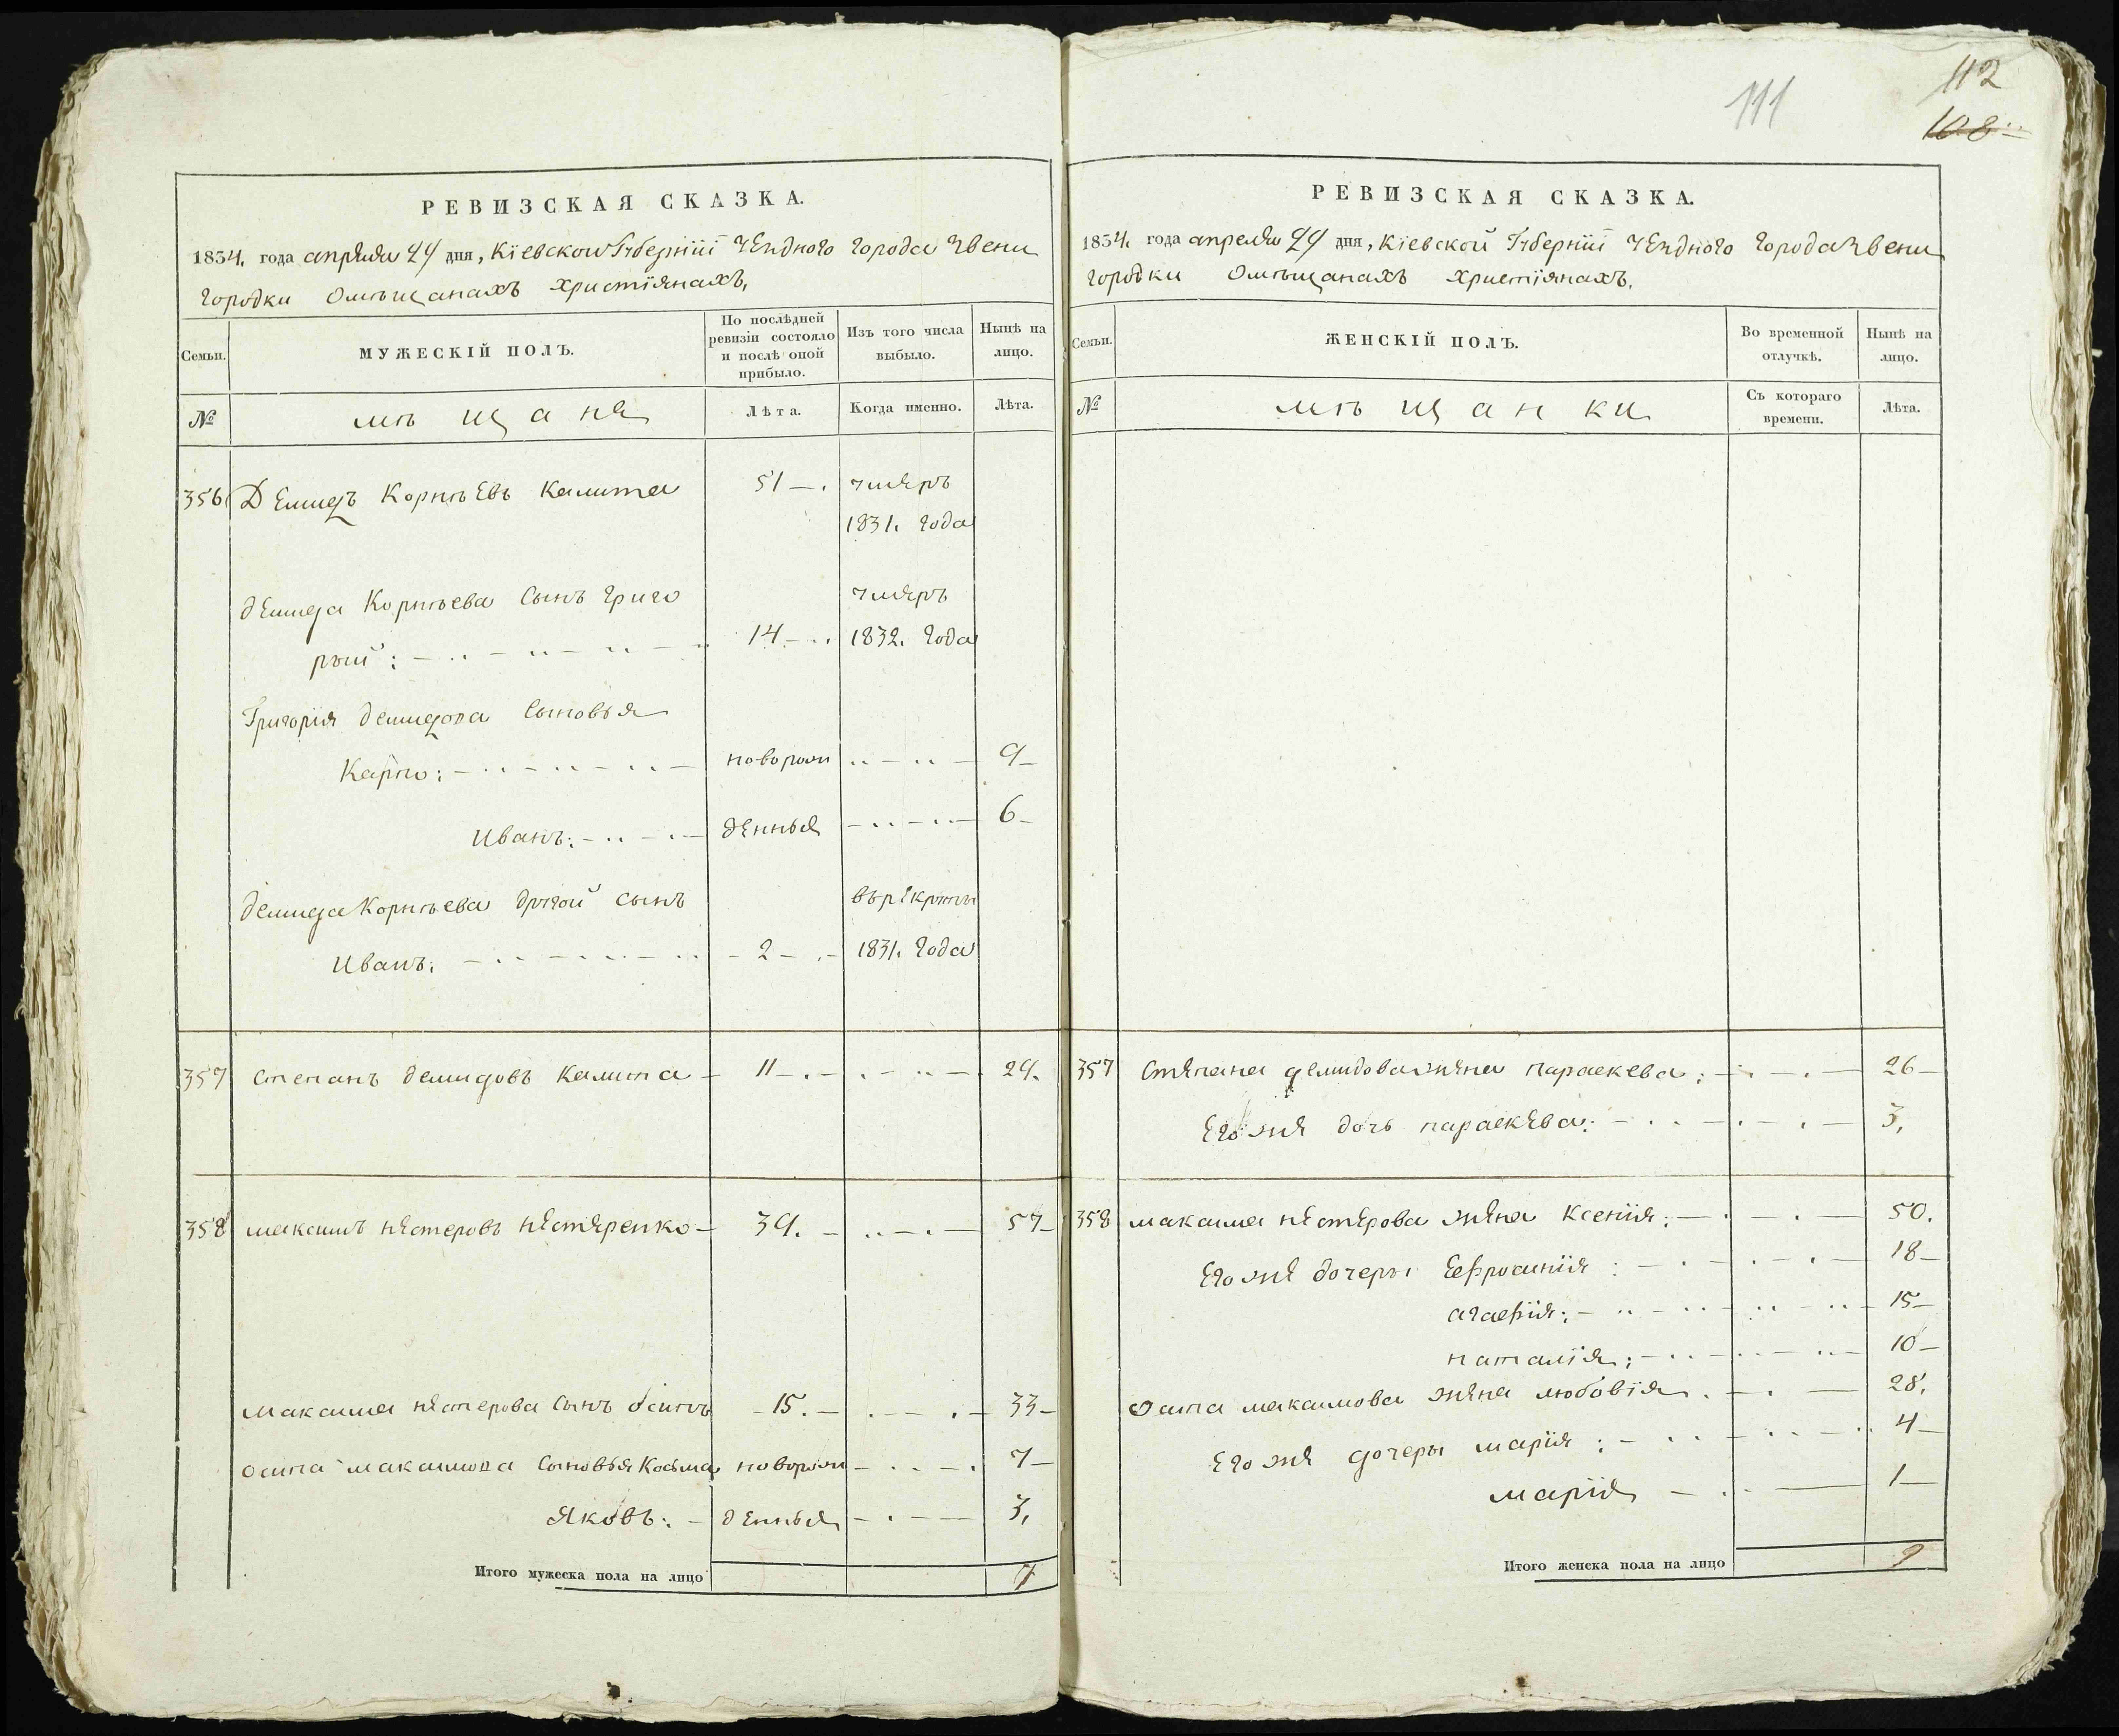 111
112
108
РЕВИЗСКАЯ СКАЗКА.
1834. года апреля 24 дня, Кіевской Губерніи уезднаго города Звени
городки О мѣщанахъ христіянахъ.
Семьи.
МУЖЕСКІЙ ПОЛЪ.
По послѣдней ревизіи состояло и послѣ оной прибыло.
Изъ того числа выбыло.
Нынѣ на лицо.
№
мѣщане
Лѣта.
Когда именно.
Лѣта.
356 Демидъ Корнѣевъ Калита 51 умеръ
1831. года
демида Корнѣева сынъ григо умеръ
рѣй: 14 1832. года
Григорія демидова сыновья
Карпо: новорож 9
Иванъ: денныя 6
демида Корнѣева другой сынъ в рекруты
Иванъ: 2 1831. года
357 степанъ демидовъ Калита 11 29.
358 максимъ нестеровъ нестеренко 39. 57
максима нестерова сынъ осипъ 15. 33
осипа максимова сыновья Косьма новорож 7
яковъ: денныя 3.
Итого мужеска пола на лицо 7
РЕВИЗСКАЯ СКАЗКА.
1834. года апреля 24 дня, Кіевской Губерніи уезднаго города Звени
городки О мѣщанахъ христіянахъ.
Семьи.
ЖЕНСКІЙ ПОЛЪ.
Во временной отлучкѣ.
Нынѣ на лицо.
№
мѣщанки
Съ котораго времени.
Лѣта.
357 степана демидова жена параскева: 26
его же дочь параскева: 3.
358 максима нестерова жена ксенія: 50.
его же дочеры Еефросинія: 18
агафія: 15
наталія: 10
осипа максимова жена любовія 28.
его же дочеры марія: 4
марія 1
Итого женска пола на лицо 9